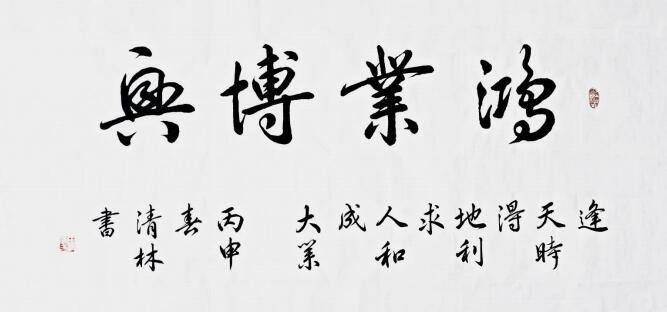 鴻業博興
逢
天時
得
地利
求
人和
成
大業
丙申
春
清林
書